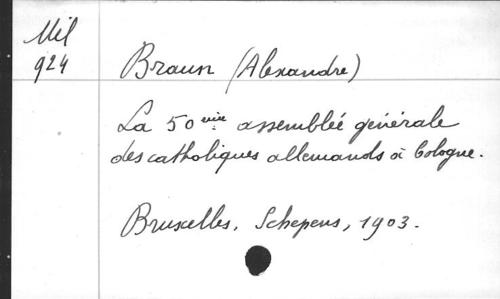 Mil
924
Braun (Alexandre)
La 50ème assemblée générale
des catholiques allemands à Cologne.
Bruxelles, Schepens, 1903.